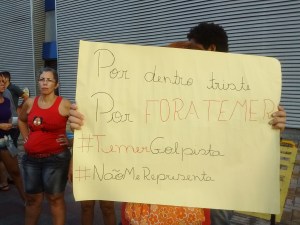 Por dentro triste
Por FORATEMER
#TemerGolpista
#NãoMeRepresenta